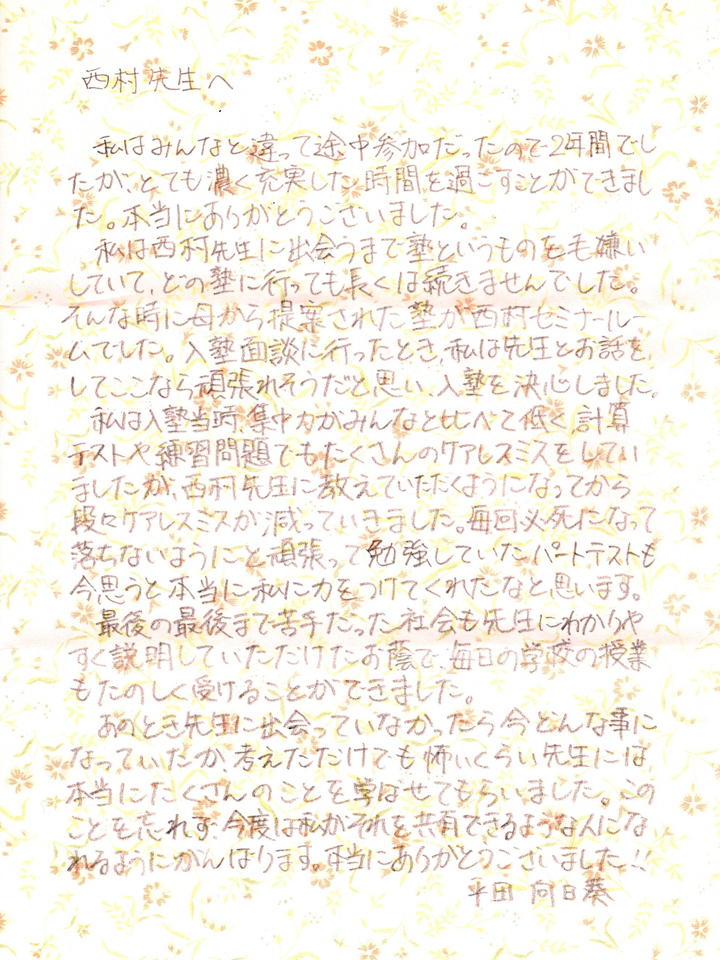 西村先生へ
私はみんなと違って途中参加だったので2年間でし
たが、とても濃く充実した時間を過ごすことができまし
た。本当にありがとうございました。
私は西村先生に出会うまで塾というものを毛嫌い
していて、どの塾に行っても長くは続きませんでした。
そんな時に母から提案された塾が西村セミナールー
ムでした。入塾面談に行ったとき、私は先生とお話を
してここなら頑張れそうだと思い、入塾を決心しました。
私は入塾当時、集中力がみんなと比べて低く、計算
テストや練習問題でもたくさんのケアレスミスをしてい
ましたが、西村先生に教えていただくようになってから
段々ケアレスミスが減っていきました。毎回必死になって
落ちないようにと頑張って勉強していたパートテストも
今思うと本当に私に力をつけてくれたなと思います。
最後の最後まで苦手だった社会も先生にわかりや
すく説明していただけたお蔭で、毎日の学校の授業
もたのしく受けることができました。
あのとき先生に出会っていなかったら今どんな事に
なっていたか、考えただけでも怖いくらい先生には
本当にたくさんのことを学ばせてもらいました。この
ことを忘れず、今度は私がそれを共有できるような人にな
れるようにがんばります。本当にありがとうございました!!
平田 向日葵